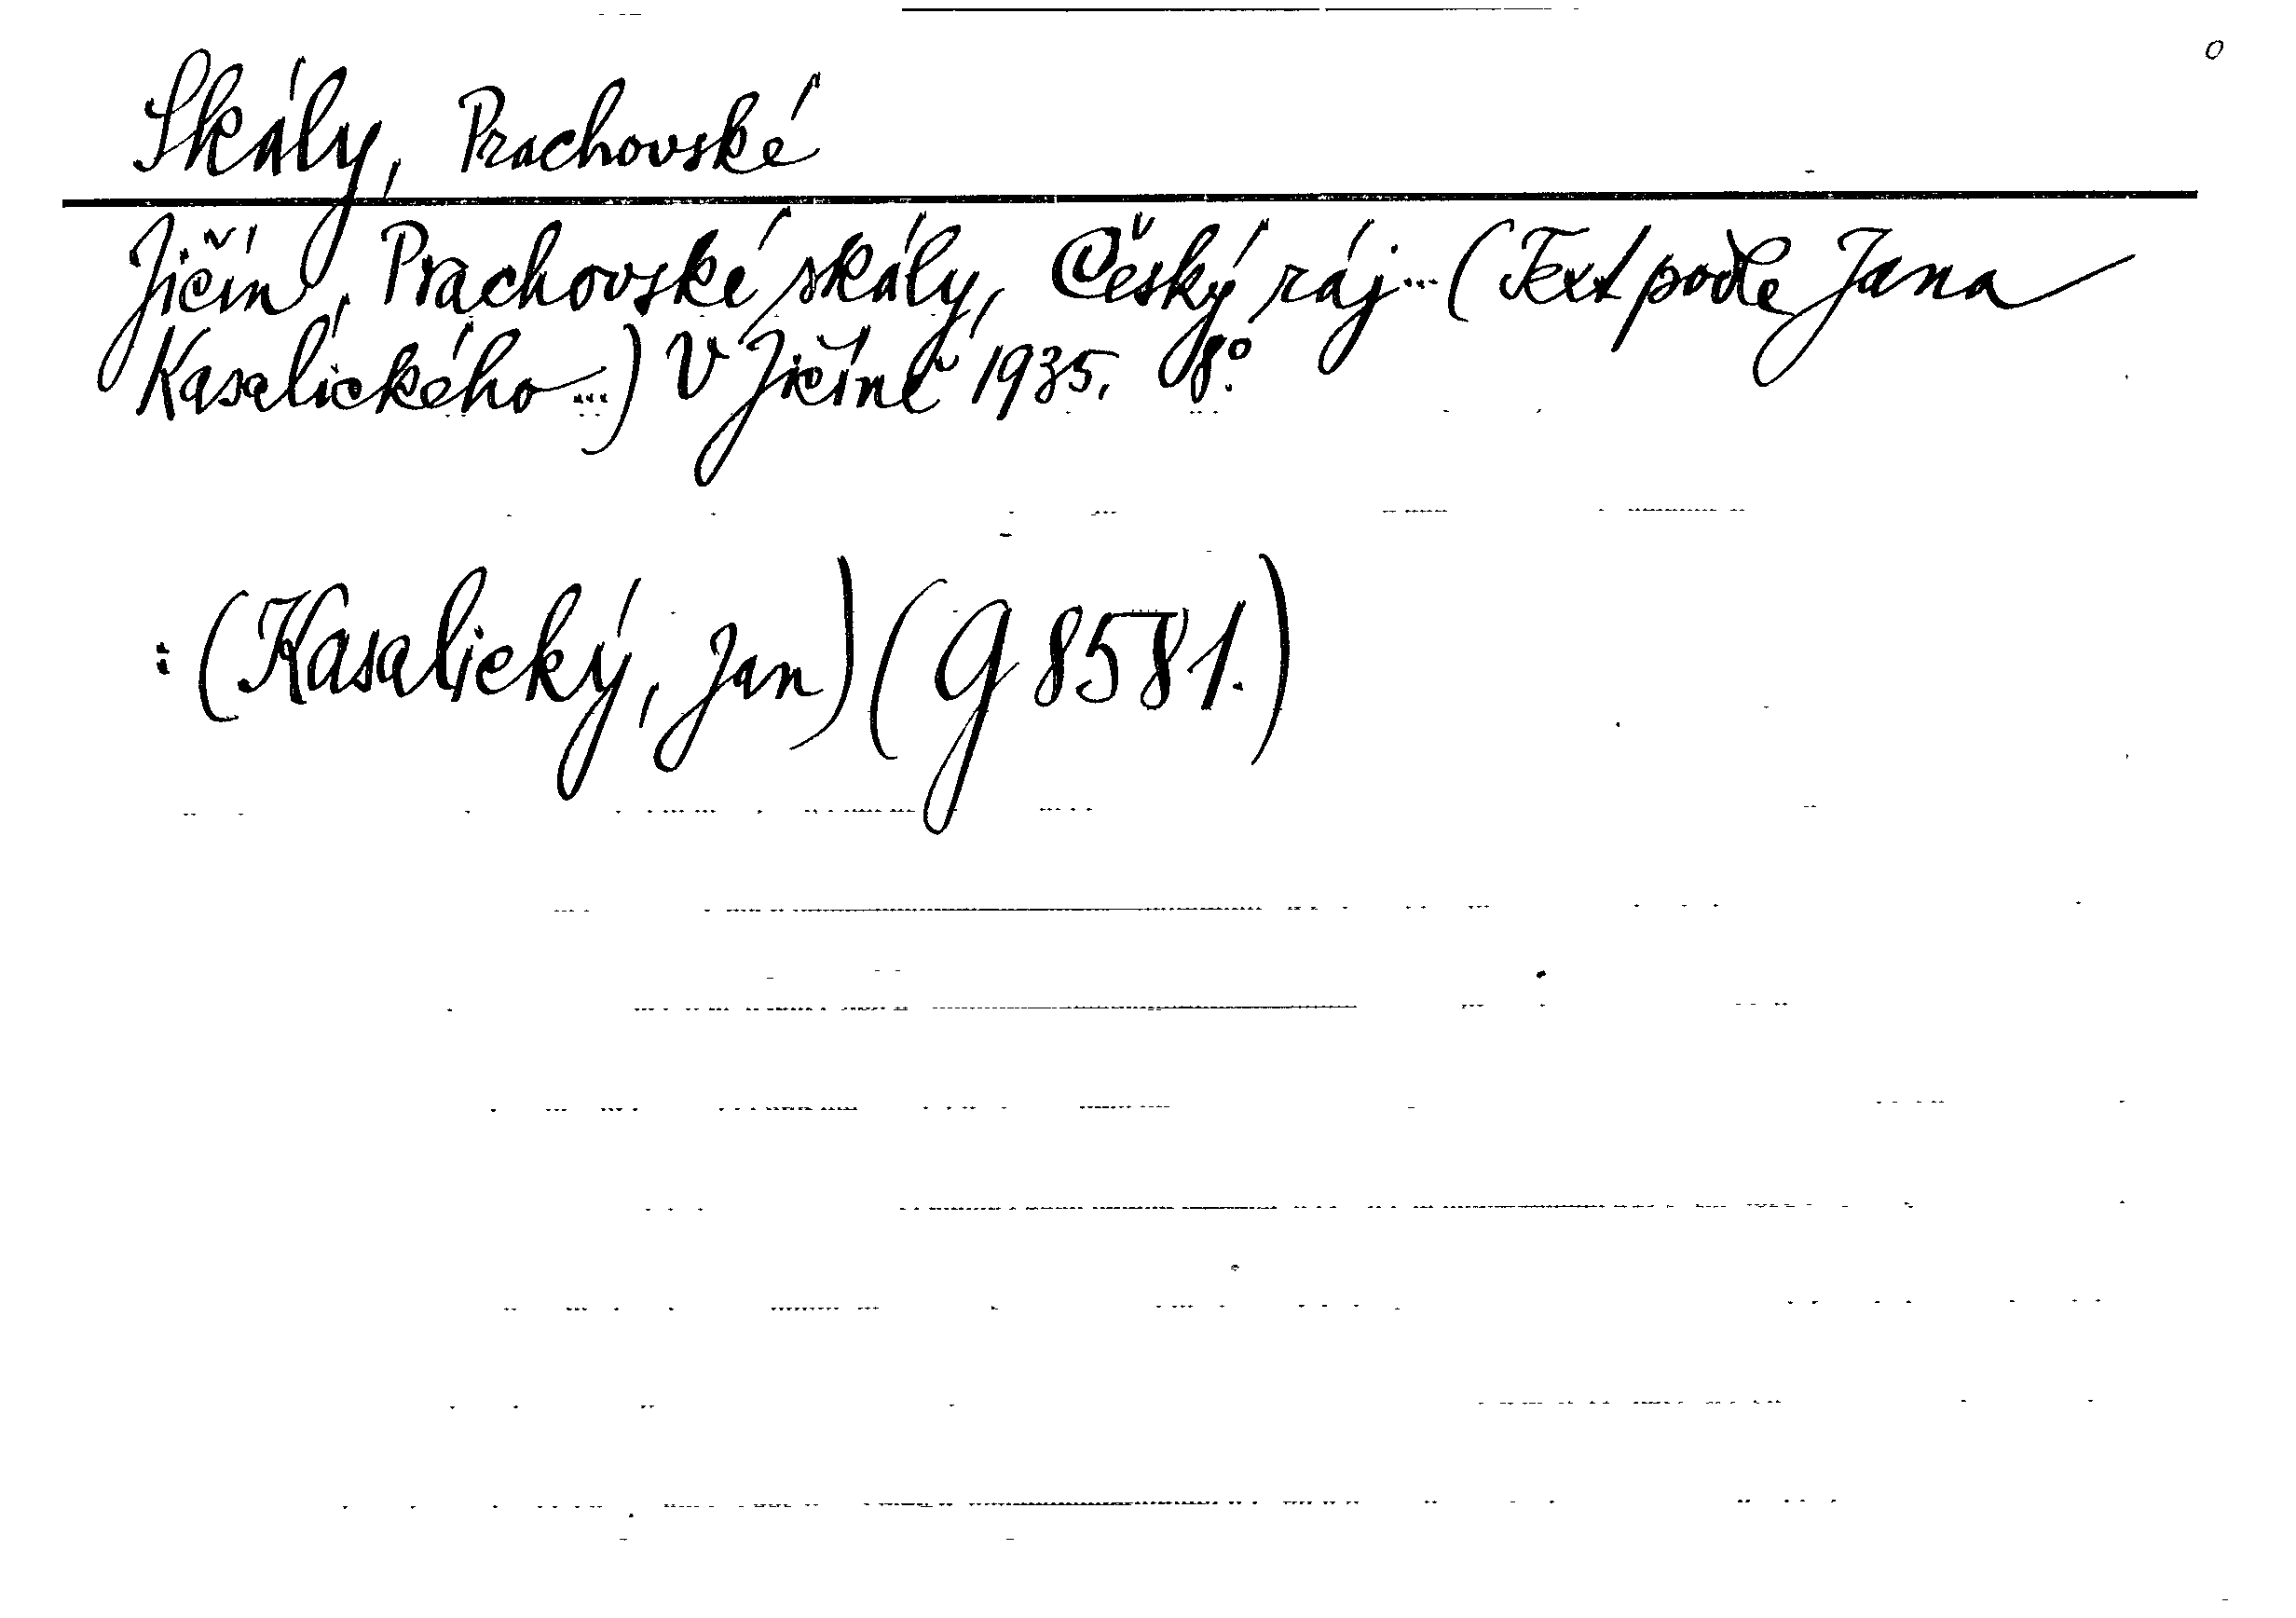 Skály, Prachovské
Jičín, Prachovské skály, Český ráj... (Text podle Jana
Kasalického...) V Jičíně 1935. 8°.
: (Kasalický, Jan) (G 8581.)